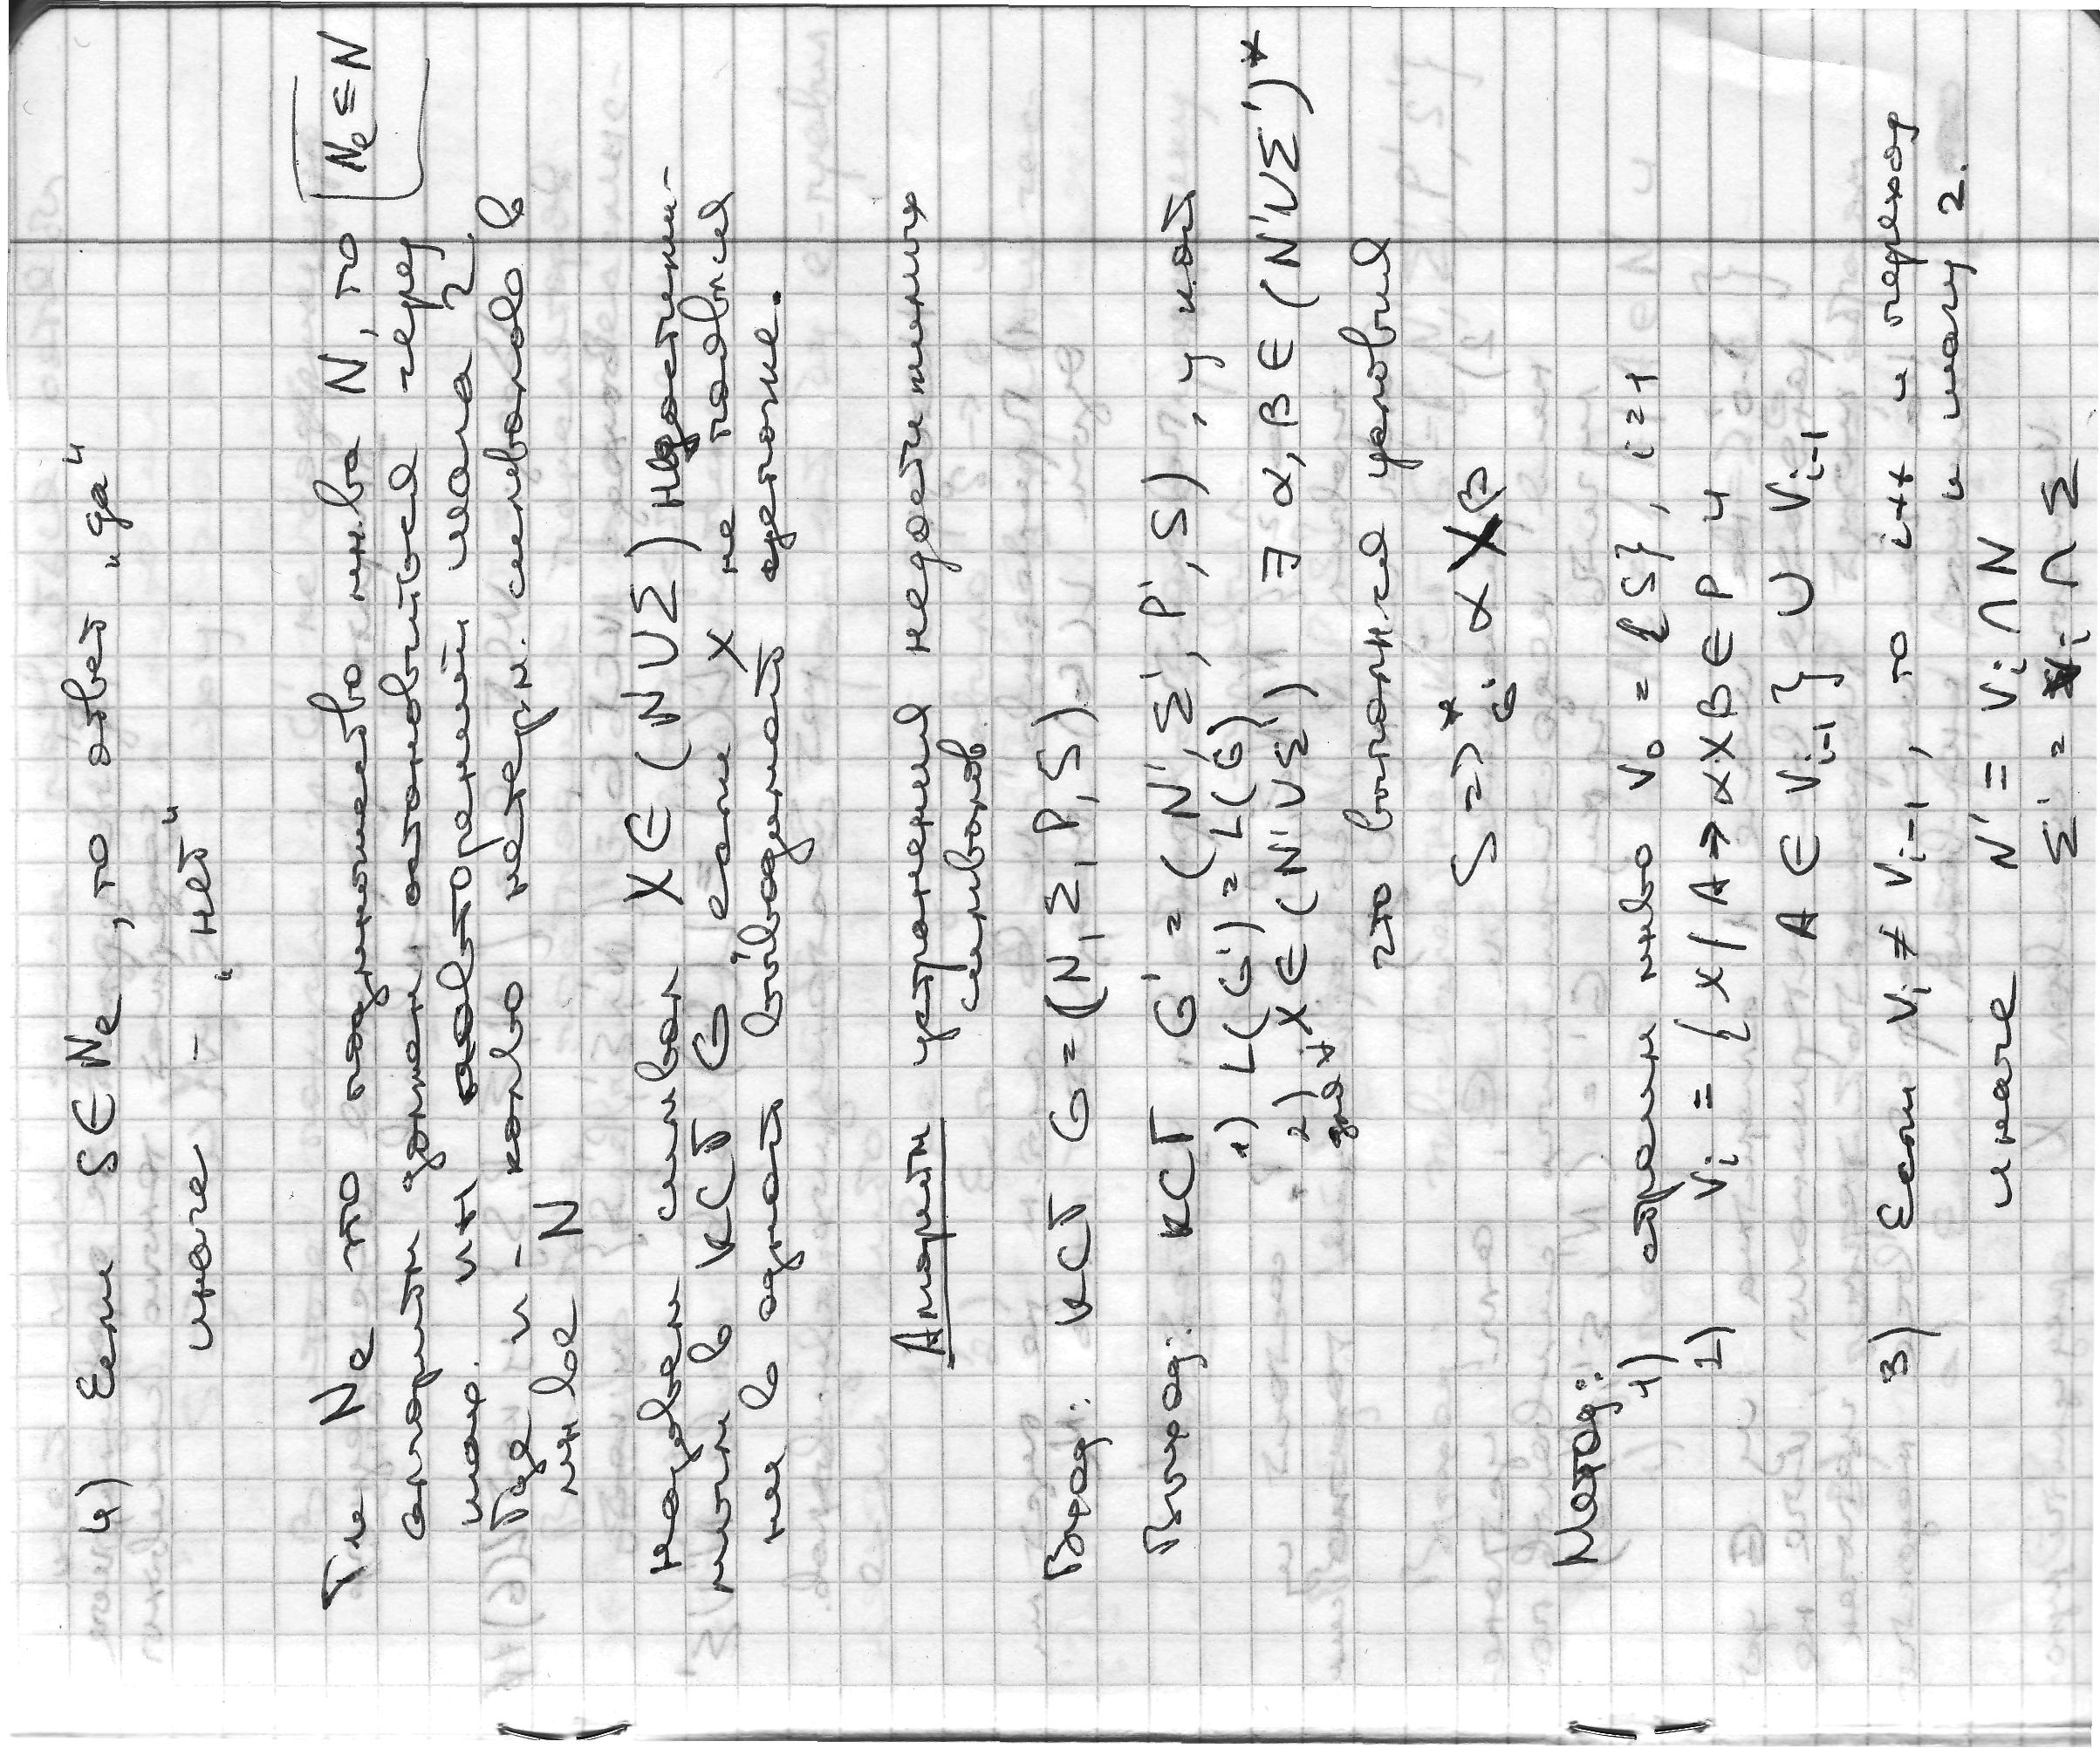 4) Если S ∈ Ne, то ответ „да“
иначе – „нет“
Т.к Ne это подмножество мн.ва N, то
Ne ⊆ N
алгоритм должен остановиться через
макс. n+1 повторений шага 2.
Где n – кол.во нетерм. символов в
мн.ве N
Назовем символ X ∈ (N ∪ Σ) недостижи-
мым в КСГ G если X не появлся
ни в одной выводимой цепочке.
Алгоритм устранения недостижимых
символов
Вход: КСГ G = (N, Σ, P, S)
Выход: КСГ G' = (N', Σ', P', S), у кот
1) L(G') = L(G)
2) для ∀ X ∈ (N' ∪ Σ') ∃ α, β ∈ (N' ∪ Σ')*
что выполн-ся условия
S =>*G' α X β
Метод:
1) строим мн.во V0 = {S}, i = 1
2) Vi = {X / A → αXβ ∈ P и
A ∈ Vi-1} ∪ Vi-1
3) Если Vi ≠ Vi-1, то i++ и переход
к шагу 2.
иначе N' = Vi ∩ N
Σ' = Vi ∩ Σ